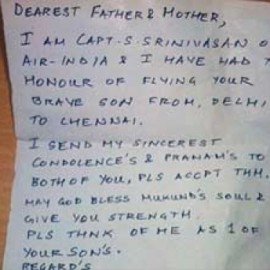 DEAREST FATHER & MOTHER,
I AM CAPT-S.SRINIVASAN O
AIR-INDIA & I HAVE HAD T
HONOUR OF FLYING YOUR
BRAVE SON FROM, DELHI
TO CHENNAI.
I SEND MY SINCEREST
CONDOLENCE'S & PRANAM'S TO
BOTH OF YOU, PLS ACCPT THM.
MAY GOD BLESS MUKUND'S SOUL &
GIVE YOU STRENGTH.
PLS THNK OF ME AS 1 OF
YOUR SON'S.
REGARD'S